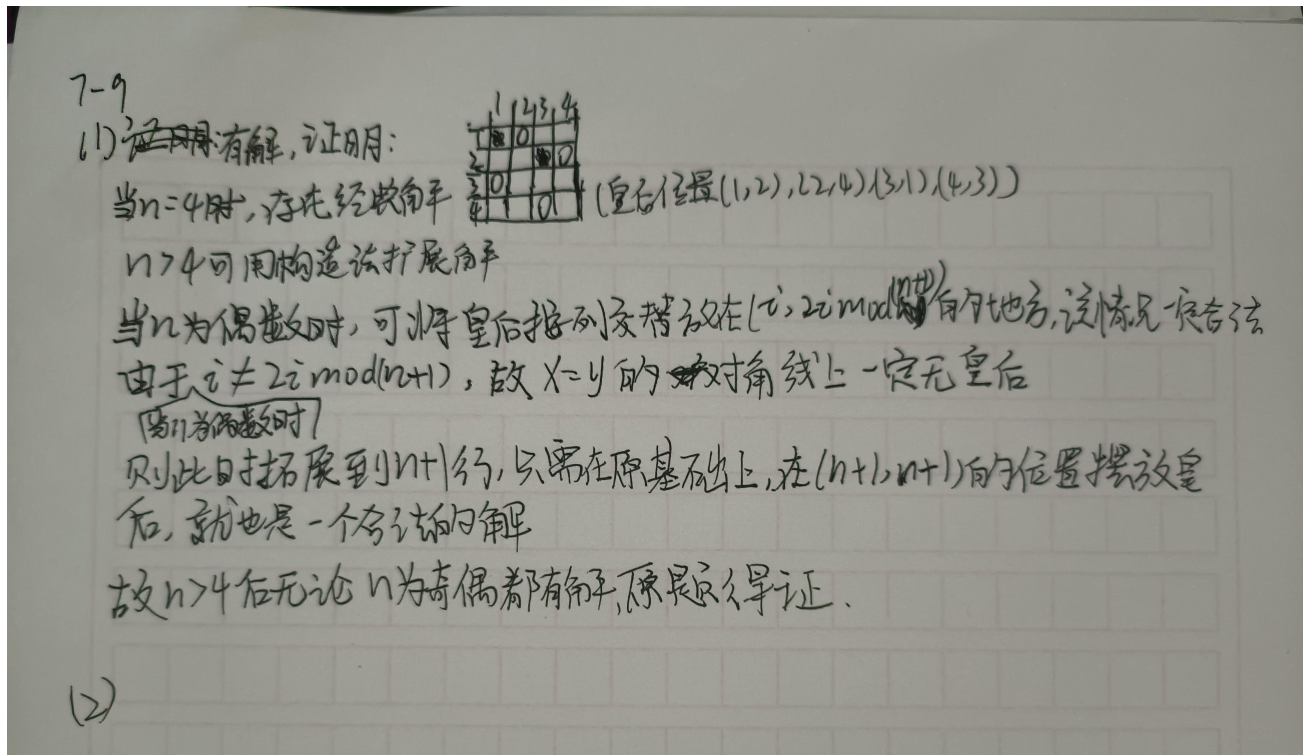 7-9
(1) 有解,证明:
1 2 3 4
1 2 3 4
当n=4时,存在经典解 (皇后位置(1,2),(2,4)(3,1),(4,3))
n>4可用构造法扩展解
当n为偶数时,可将皇后按列交替放在(i, 2i mod(n+1))的地方,该情况一定合法
由于i≠2i mod(n+1),故x=y的对角线上一定无皇后
当n为偶数时
则此时拓展到n+1行,只需在原基础上,在(n+1,n+1)的位置摆放皇
后,就也是一个合法的解
故n>4后无论n为奇偶都有解,原题得证.
(2)